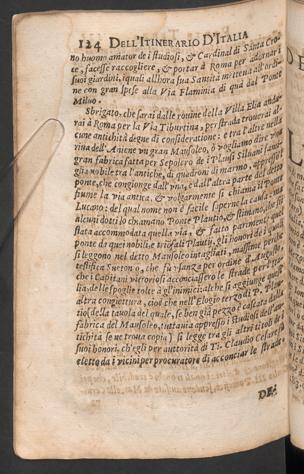 124 DELL'ITINERARIO D'ITALIA
no huomo amator de i studiosi, & Cardinal di Santa Cro-
ce, facesse raccogliere, & portar à Roma per adornar i
suoi giardini, i quali all'hora sua Santità
ne con gran spese alla Via Flaminia di quà dal Ponte
Milvo.
Sbrigato, che sarai dalle rovine della Villa Elia andar
rai à Roma per la Via Tiburtina, per strada troverai al-
cune antichità degne di consideratione: e tra l'altre
riva dell'Aniene un gran Mausoleo, ò vogliamo dire una
gran fabrica fatta per Sepolcro de i Plautii Silvani
glia nobile tra l'antiche, di quadroni di marmo, appresso il
ponte, che congionge dall'una, e dall'altra parte del detto
fiume la via antica, & volgarmente si chiama il Ponte
Lucano: del qual nome non è facile saperne la causa
alcuni dotti lo chiamano Ponte Plautio, & stimano, che sia
stata accommodata quella via, & fatto parimente il
ponte da quei nobili, e triōfali Plautij, gli honori de i quali
si leggono nel detto Mausoleo intagliati, massime perche
testifica Suetonio, che fù usanza per ordine d'Augusto,
che i Capitani vitoriosi acconciassero le strade per
lia, delle spoglie tolte à gl'inimici: alche si aggiunge
altra congiettura, cioè che nell'Elogio terzo di P. Plau-
tio (della tavola del quale, se ben già pezzo è cascata
fabrica del Mausoleo, tuttavia appresso i studiosi
tichità se ne trova copia) si legge tra gli altri titoli de i
suoi honori, ch'egli per autorità di Ti. Claudio Cesare fù
eletto da i vicini per procuratore di acconciar le strade.
DE'